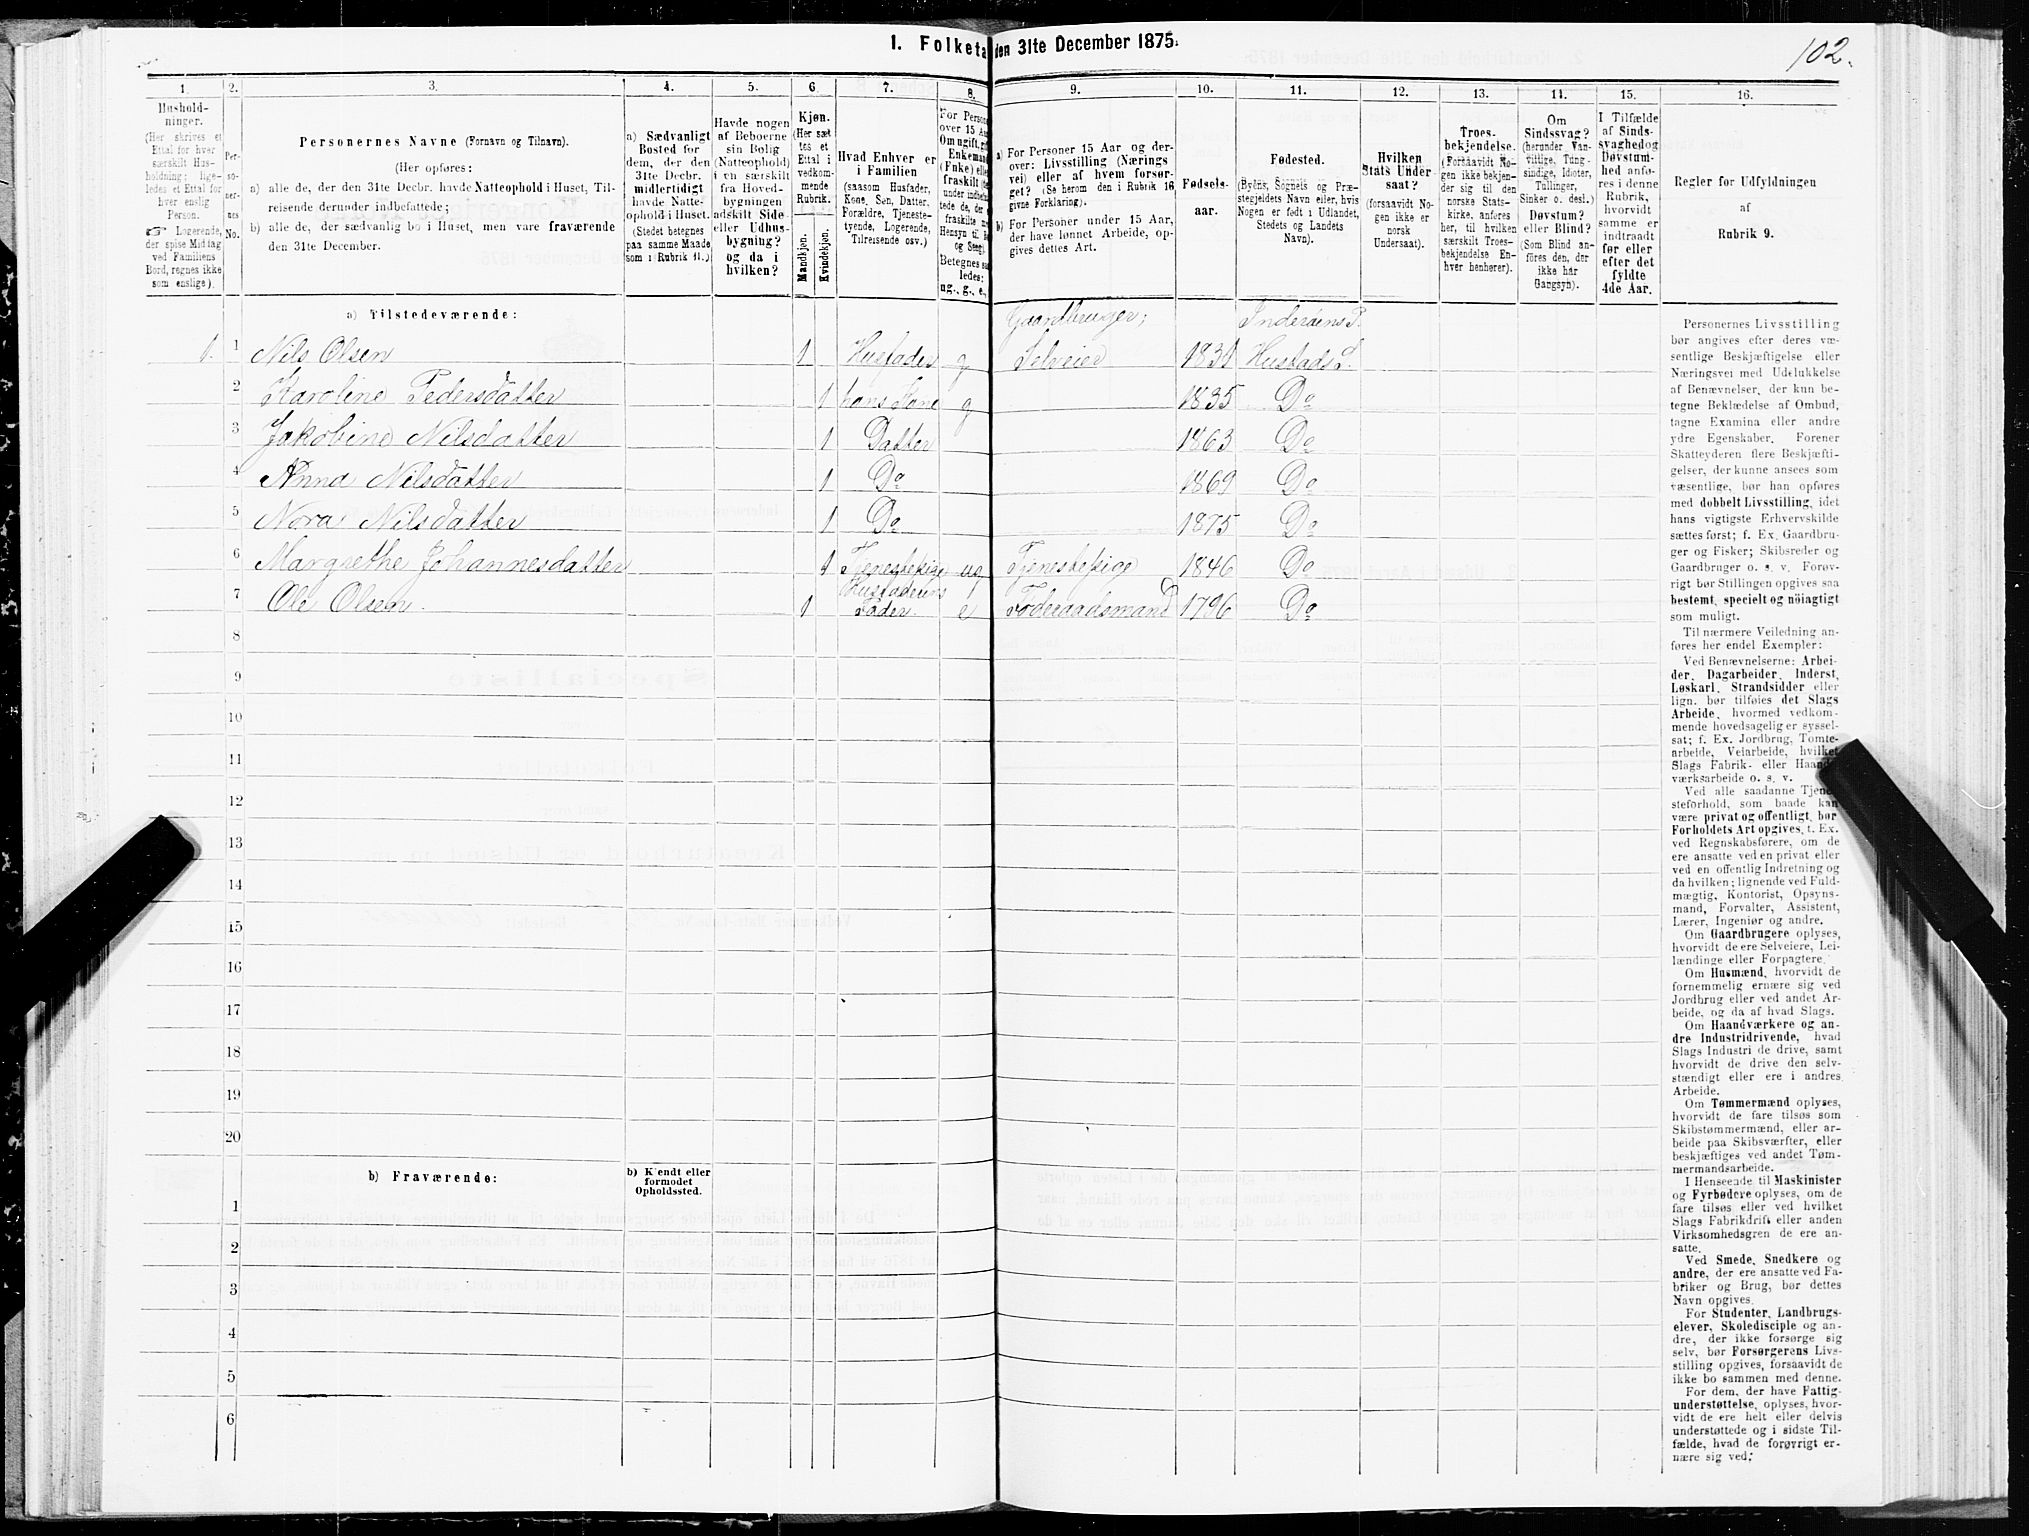 1. Folketa
den 31te December 1875.
102.
1.
2.
3.
4.
5.
6.
7.
8.
9.
10.
11.
12.
13.
14.
15.
16.
Hushold-
ninger.
(Her skrives et
Ettal for hver
særskilt Hus-
holdning; lige-
ledes et Ettal for
hver enslig
Person.
☞ Logerende,
der spise Middag
ved Familiens
Bord, regnes ikke
som enslige).
Per-
so-
ner-
nes
No.
Personernes Navne (Fornavn og Tilnavn).
(Her opføres:
a) alle de, der den 31te Decbr. havde Natteophold i Huset, Til-
reisende derunder indbefattede;
b) alle de, der sædvanlig bo i Huset, men vare fraværende
den 31te December.
a) Sædvanligt
Bosted for
dem, der den
31te Decbr.
midlertidigt
havde Natte-
ophold i Huset.
(Stedet betegnes
paa samme Maade
som i Rubrik 11.)
Havde nogen
af Beboerne
sin Bolig
(Natteophold)
i en særskilt
fra Hoved-
bygningen
adskilt Side-
eller Udhus-
bygning?
og da i
hvilken?
Kjøn.
(Her sæt-
tes et
Ettal i
vedkom-
mende
Rubrik.
Mandkjøn.
Kvindekjøn.
Hvad Enhver er
i Familien
(saasom Husfader,
Kone, Søn, Datter,
Forældre, Tjeneste-
tyende, Logerende,
Tilreisende osv.)
For Persone
over 15 Aar
Om ugift, gif
Enkemand
(Enke) elle
fraskilt (d
under indbefat-
tede de, der
fraskilte
Hensyn til
og Seng).
Betegnes saa
ledes:
ug., g., e.,
a) For Personer 15 Aar og der-
over: Livsstilling (Nærings
vei) eller af hvem forsør-
get? (Se herom den i Rubrik 16
givne Forklaring).
b) For Personer under 15 Aar,
der have lønnet Arbeide, op-
gives dettes Art.
Fødsels-
aar.
Fødested.
(Byens, Sognets og Præ-
stegjeldets Navn eller, hvis
Nogen er født i Udlandet,
Stedets og Landets
Navn).
Hvilken
Stats Under-
saat?
(forsaavidt No-
gen ikke er
norsk
Undersaat).
Troes-
bekjendelse.
(Forsaavidt No-
gen ikke bekjen-
der sig til den
norske Stats-
kirke, anføres
her, til hvilken
særskilt Troes-
bekjendelse En-
hver henhører).
Om
Sindssvag?
(herunder Van-
vittige, Tung-
sindige, Idioter,
Tullinger,
Sinker o. desl.)
Døvstum?
eller Blind?
(Som Blind an-
føres den, der
ikke har
Gangsyn).
I Tilfælde
af Sinds-
svaghed og
Døvstum-
hed anfø-
res i denne
Rubrik,
hvorvidt
samme er
indtraadt
før eller
efter det
fyldte
4de Aar.
Regler for Udfyldningen
af
Rubrik 9.
a) Tilstedeværende:
Gaardbruger;
Inderøens P.
1. 1 Nils Olsen 1 Husfader g Selveier 1831 Hustads S.
2 Karoline Pedersdatter 1 hans Kone g 1835 Do
3 Jakobine Nilsdatter 1 Datter 1863 Do
4 Anna Nilsdatter 1 Do 1869 Do
5 Nora Nilsdatter 1 Do 1875 Do
6 Margrethe Johannesdatter 1 Tjenestepige ug Tjenestepige 1846 Do
Husfaderens
7 Ole Olsen. 1 Fader. e Føderaadsmand 1796 Do
8
9
10
11
12
13
14
15
16
17
18
19
20
b) Fraværende:
b) Kjendt eller
formodet
Opholdssted.
1
2
3
4
5
6
Personernes Livsstilling
bør angives efter deres væ-
sentlige Beskjæftigelse eller
Næringsvei med Udelukkelse
af Benævnelser, der kun be-
tegne Beklædelse af Ombud,
tagne Examina eller andre
ydre Egenskaber. Forener
Skatteyderen flere Beskjæfti-
gelser, der kunne ansees som
væsentlige, bør han opføres
med dobbelt Livsstilling, idet
hans vigtigste Erhvervskilde
sættes først; f. Ex. Gaardbru-
ger og Fisker; Skibsreder og
Gaardbruger o. s. v. Forøv-
rigt bør Stillingen opgives saa
bestemt, specielt og nöiagtigt
som muligt.
Til nærmere Veiledning an-
føres her endel Exempler:
Ved Benævnelserne: Arbei-
der, Dagarbeider, Inderst,
Løskarl, Strandsidder eller
lign. bør tilføies det Slags
Arbeide, hvormed vedkom-
mende hovedsagelig er syssel-
sat; f. Ex. Jordbrug, Tomte-
arbeide, Veiarbeide, hvilket
Slags Fabrik- eller Haand-
værksarbeide o. s. v.
Ved alle saadanne Tjene-
steforhold, som baade kan
være privat og offentligt, bør
Forholdets Art opgives, t. Ex.
ved Regnskabsførere, om de
ere ansatte ved en privat eller
ved en offentlig Indretning og
da hvilken; lignende ved Fuld-
mægtig, Kontorist, Opsyns-
mand, Forvalter, Assistent,
Lærer, Ingeniør og andre.
Om Gaardbrugere oplyses,
hvorvidt de ere Selveiere, Lei-
lændinge eller Forpagtere.
Om Husmænd, hvorvidt de
fornemmelig ernære sig ved
Jordbrug eller ved andet Ar-
beide, og da af hvad Slags.
Om Haandværkere og an-
dre Industridrivende, hvad
Slags Industri de drive, samt
hvorvidt de drive den selv-
stændigt eller ere i andres
Arbeide.
Om Tømmermænd oplyses,
hvorvidt de fare tilsøs som
Skibstømmermænd, eller ar-
beide paa Skibsværfter, eller
beskjæftiges ved andet Tøm-
mermandsarbeide.
I Henseende til Maskinister
og Fyrbødere oplyses, om de
fare tilsøs eller ved hvilket
Slags Fabrikdrift eller anden
Virksomhedsgren de ere an-
satte.
Ved Smede, Snedkere og
andre, der ere ansatte ved Fa-
briker og Brug, bør dettes
Navn opgives.
For Studenter, Landbrugs-
elever, Skoledisciple og an-
dre, der ikke forsørge sig
selv, bør Forsørgerens Livs-
stilling opgives, forsaavidt de
ikke bo sammen med denne.
For dem, der have Fattig-
understøttelse, oplyses, hvor-
vidt de ere helt eller delvis
understøttede og i sidste Til-
fælde, hvad de forøvrigt er-
nære sig ved.